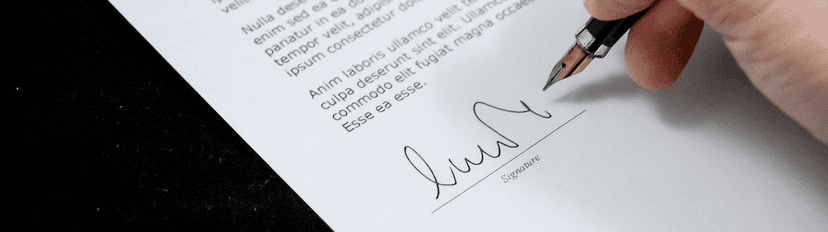 velit
Nulla dese
enim sed ea d
pariatur in ea do
tempor velit, adipis
ipsum consectetur dolo
Anim laboris ullamco velit te
culpa deserunt sint elit. Ullamc
commodo elit fugiat magna occae
Esse ea esse.
Signature